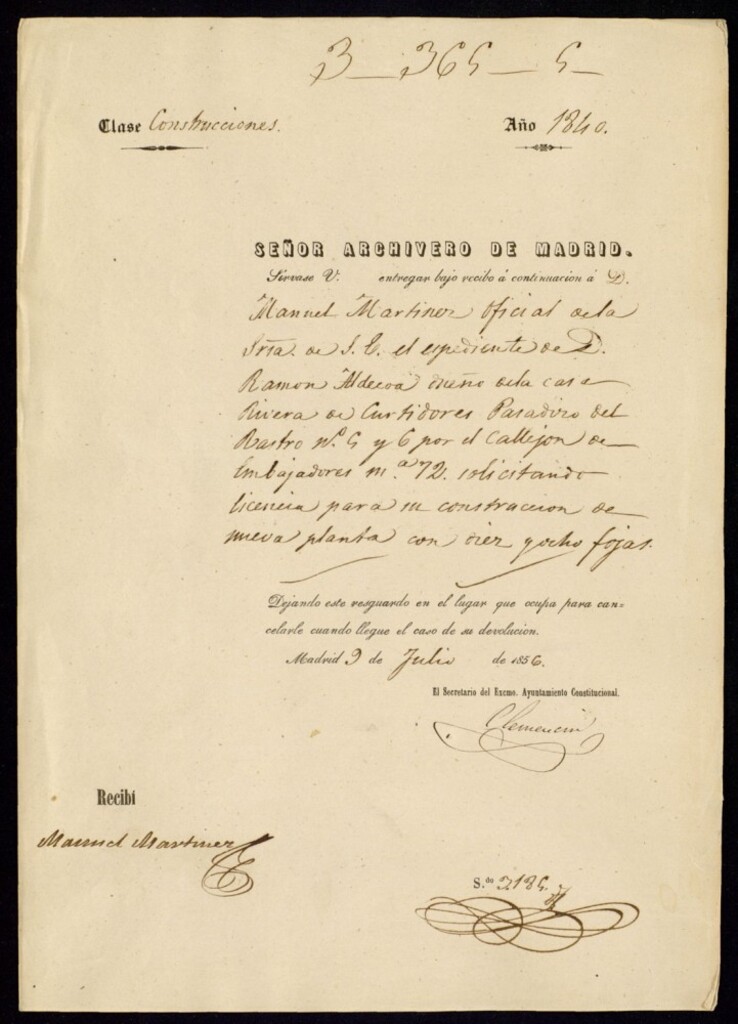 3 - 365 - 5 -
Clase Construcciones.
Año 1840.
SEÑOR ARCHIVERO DE MADRID.
Sírvase V. entregar bajo recibo á continuacion á D.
Manuel Martinez Oficial de la
Sría. de S. E. el espediente de D.
Ramon Aldecoa dueño de la casa
Rivera de Curtidores Pasadizo del
Rastro nº. 5 y 6 por el Callejon de
Embajadores m.ª 72. solicitando
licencia para su construccion de
nueva planta con diez y ocho fojas.
Dejando este resguardo en el lugar que ocupa para can-
celarle cuando llegue el caso de su devolucion.
Madrid 9 de Julio de 1856.
El Secretario del Excmo. Ayuntamiento Constitucional.
Clemencin
Recibí
Manuel Martinez
S.do 3185